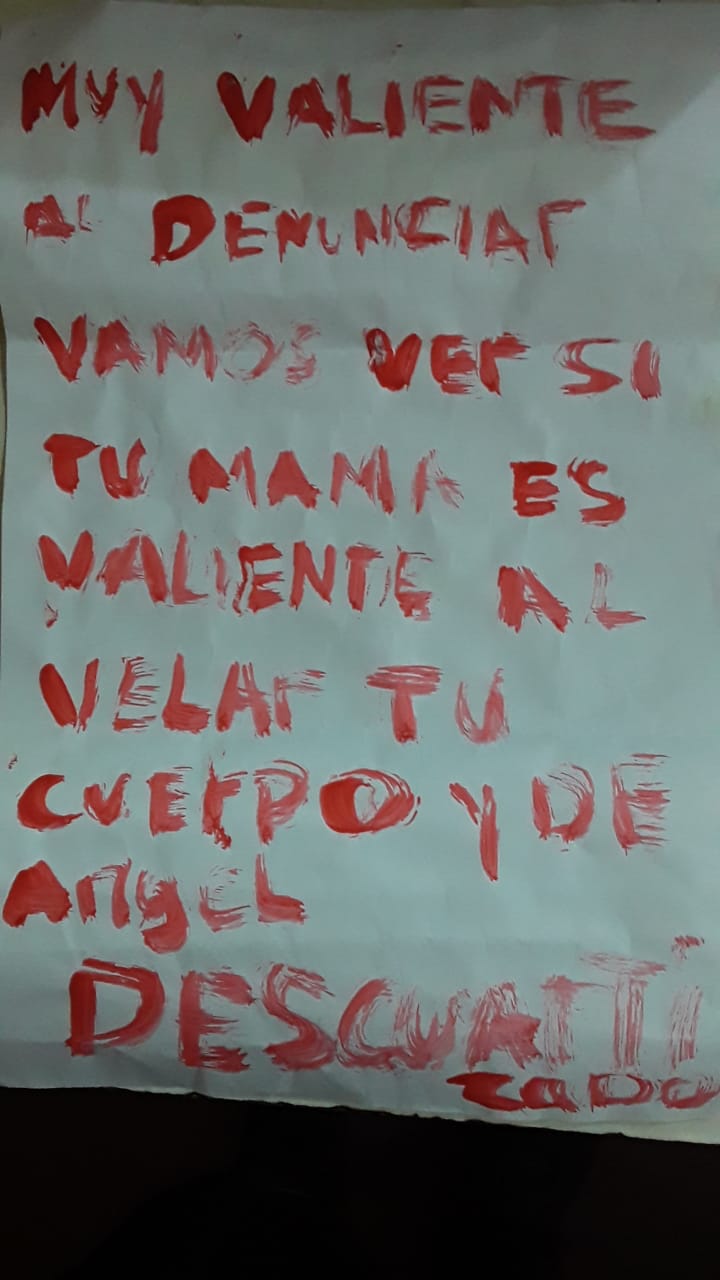 MUY VALIENTE
AL DENUNCIAr
VAMOS VEr SI
TU MAMA ES
VALIENTE AL
VELAr TU
CUErPO Y DE
AngEL
DESCUArTI
zaDO